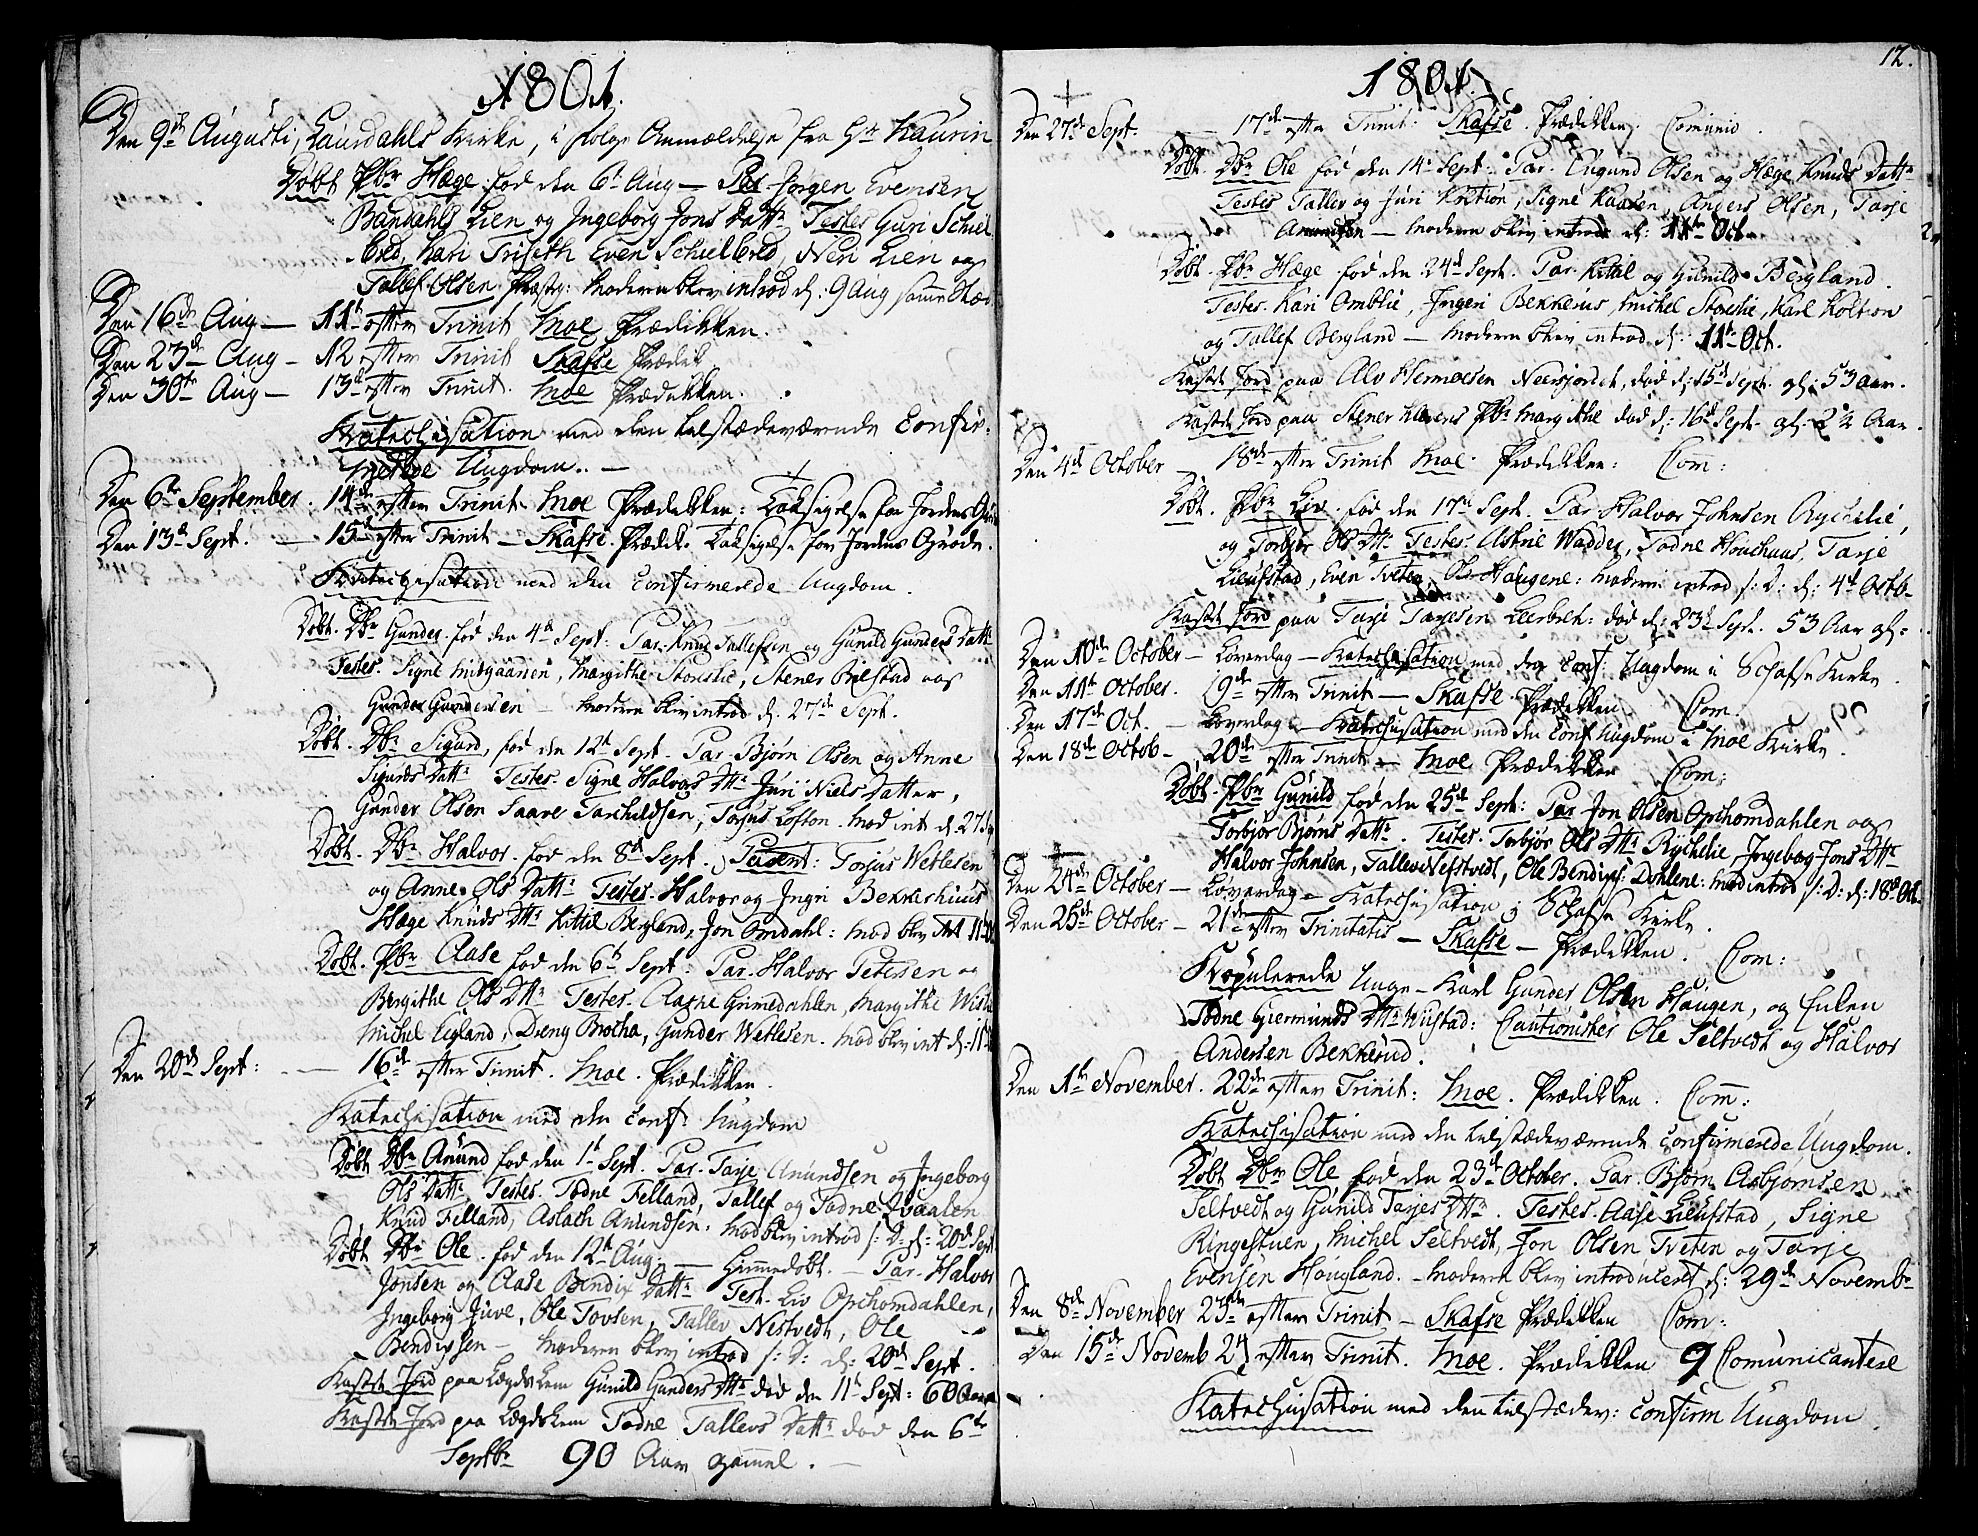 1801.
Den 9de Augusti, Laurdahls Kirke, i følge Anmældelse fra Hr Kaurin
Døbt Pbr Hæge fød den 6te Aug — Par Jørgen Evensen
Bandahls Lien og Ingeborg Jons Dattr Testes Guri Schiel
bred, Kari Trisæth Even Schielbred, Neri Lien og
Tallef Olsen Præstg: Moderen blev introd d: 9 Aug samme Sted
Den 16de Aug — 11te efter Trinit Moe Prædikken.
Den 23de Aug — 12 efter Trinit Skafse Prædik
Den 30te Aug — 13de efter Trinit. Moe Prædikken.
Katechisation med den tilstædeværende Confir-
merede Ungdom. —
Den 6te September. 14de efter Trinit Moe Prædikken: Taksigelse for Jordens Grøde
Den 13de Sept. — 15de efter Trinit — Skafse. Prædik: Taksigelse for Jordens Grøde.
Katechisation med den Confirmerede Ungdom.
Døbt. Dbr Gunder fød den 4de Sept: Par. Knud Tallefsen og Gunild Gunders Dattr
Testes. Signe Midgaarden, Margithe Storeslie, Stener Bielstad og
Gunder Gundersen — Moderen blev introd d. 27de Sept.
Døbt. Dbr Sigurd, fød den 12te Sept. Par. Bjørn Olsen og Anne
Sigurds Dattr Testes. Signe Halvors Dttr Juri Niels Datter,
Gunder Olsen Saave Tarchildsen, Torjus Lofton. Mod int d. 27 Sep
Døbt. Dbr Halvor. fød den 8de Sept. Parent: Torjus Wetlesen
og Anne Ols Dattr Testes. Halvor og Ingri Bekkerhuus
Hæge Knuds Dttr Kittil Bergland, Jon Omdahl: Mod blev int 11te Oct
Døbt. Pbr Aase fød den 6te Sept: Par. Halvor Petersen og
Bergithe Ols Dttr Testes. Aaste Grimedahlen, Margithe
Michel Eigland, Dreng Brocha, Gunder Wetlesen. Mod blev int d: 11te
Den 20de Sept: — 16de efter Trinit. Moe. Prædikken.
Katechisation med den Conf: Ungdom
Døbt Dbr Anund fød den 1te Sept. Par. Tarje Anundsen og Ingeborg
Ols Datr Testes. Todne Felland, Tallef og Todne Qvaalen
Knud Felland, Aslach Anundsen. Mod blev introd s: D: d: 20de Sept
Døbt Dbr Ole. fød den 12te Aug. — Hiemmedøbt. — Par. Halvor
Jonsen og Aase Bendix Dattr Test. Liv Opchomdahlen,
Ingeborg Juve, Ole Tovsen, Tallev Nestvedt, Ole
Bendixsen — Moderen blev introd s: D: d: 20de Sept.
Kastet Jord paa Lægdslem Gunild Gunders Dttr død den 11te Sept: 60 Aar
Kastet Jord paa Lægdslem Todne Tallevs Dattr død den 6te
Septbr 90 Aar gammel. —
12.
1801.
Den 27de Sept. — 17de efter Trinit: Skafse. Prædikken. Comunio.
Døbt. Dbr Ole fød den 14de Sept: Par. Eugund Olsen og Hæge Knuds Dattr
Testes Tallev og Juri Koltion, Signe Kaasen, Anders Olsen, Tarje
Anundsen — Moderen blev introd d: 11te Oct.
Døbt. Dbr Hæge fød den 24de Sept. Par. Kittil og Gunild Bergland.
Testes. Kari Omblie, Ingeri Bekkhuus, Michel Storeslie, Karl Koltion
og Tallef Bergland — Moderen blev introd d: 11te Oct.
Kastet Jord paa Alv Hermoesen Neersjordet, død d: 15de Sept. gl: 53 Aar.
Kastet Jord paa Stener Klevens Pbr Margithe død d: 16de Sept. gl: 2½ Aar.
Den 4de October — 18de efter Trinit Moe. Prædikken: Com:
Døbt. Pbr Liv. fød den 17de Sept. Par Halvor Johnsen Rychelie,
og Torbjør Ols Dttr Testes. Astrie Wadder, Todne Houchuus, Tarje
Lieufstad, Even Tveten, Ole Haugene: Moderen introd s: D: d: 4de Octb.
Kastet Jord paa Tarje Tarjesen Leerbek: død d: 23de Sept. 53 Aar gl:
Den 10de October — Løverdag — Katechisation med den Conf: Ungdom i Schafse Kirke.
Den 11te October. 19de efter Trinit — Skafse Prædikken Com.
Den 17de Oct. — Løverdag — Katechisation med den Conf Ungdom i Moe Kirke.
Den 18de Octob — 20de efter Trinit — Moe Prædikken Com:
Døbt. Pbr Gunild fød den 25de Sept: Par Jon Olsen Opchomdahlen og
Torbjør Bjørns Dattr. Testes. Torbjør Ols Dttr Rychelie, Ingeborg Jons Dttr
Halvor Johnsen, Tallev Nestvedt, Ole Bendixs: Dahlene: Mod introd s: D: d: 18de Oct.
Den 24de October — Løverdag — Katechisation i Schafse Kirke.
Den 25de October — 21de efter Trinitatis — Skafse — Prædikken. Com:
Kopulerede Unge-Karl Gunder Olsen Haugen, og Enken
Todne Giermunds Dttr Wistad: Cautionister Ole Seltvedt og Halvor
Andersen Bekkerud.
Den 1te November. 22de efter Trinit: Moe. Prædikken. Com:
Katechisation med den tilstædeværende Confirmerede Ungdom.
Døbt Dbr Ole fød den 23de October. Par. Bjørn Asbjørnsen
Seltvedt og Gunild Tarjes Dttr. Testes. Aase Lieufstad, Signe
Ringestuen, Michel Seltvedt, Jon Olsen Tveten og Tarje
Evensen Hougland. — Moderen blev introduceret d: 29de Novembr
Den 8de November 23de efter Trinit — Skafse Prædikken Com:
Den 15de Novemb 24 efter Trinit. Moe. Prædikken 9 Comunicantere
Katechisation med den tilstædev: Confirm Ungdom.